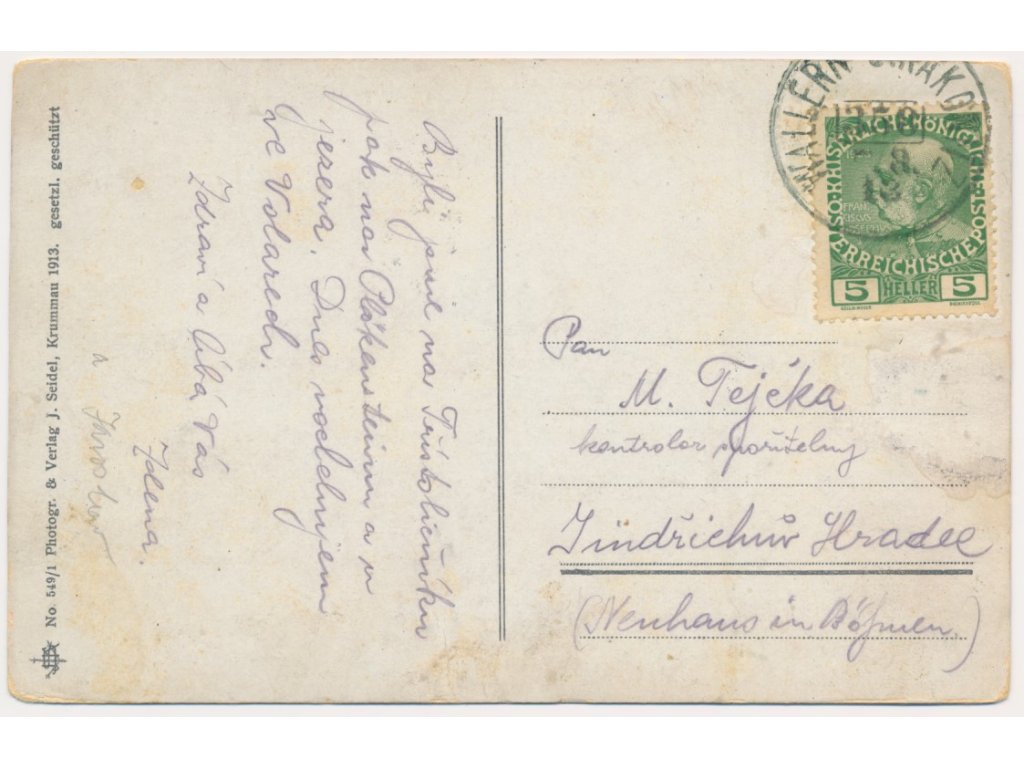 No. 549/1 Photogr. & Verlag J. Seidel, Krummau 1913. gesetzl. geschützt
Byli jsme na Třístoličníku
pak na Plökensteinu a u
jezera. Dnes
ve Volarech.
Zdraví a líbá Vás
Zdena.
a
WALLERN
KAISERL. KÖNIGL.
ÖSTERREICHISCHE POST
FRAN
CISCVS
IOSEPHVS
5 HELLER 5
Pan
M. Tejčka
kontrolor spořitelny
Jindřichův Hradec
(Neuhaus in Böhmen.)